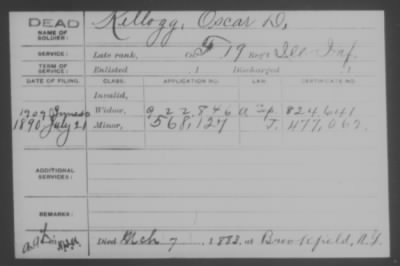 DEAD
NAME OF SOLDIER: Kellogg, Oscar D,
SERVICE: Late rank, Co. F 19 Reg't Ill Inf.
TERM OF SERVICE: Enlisted , 1 Discharged , 1
DATE OF FILING. CLASS. APPLICATION NO. LAW. CERTIFICATE NO.
Invalid,
1909 Widow, 922846 824,641
1890 July 21 Minor, 568,127 J. 477,062.
ADDITIONAL SERVICES:
REMARKS:
Died Mch 7, 1883, at Brookfield, N.Y.